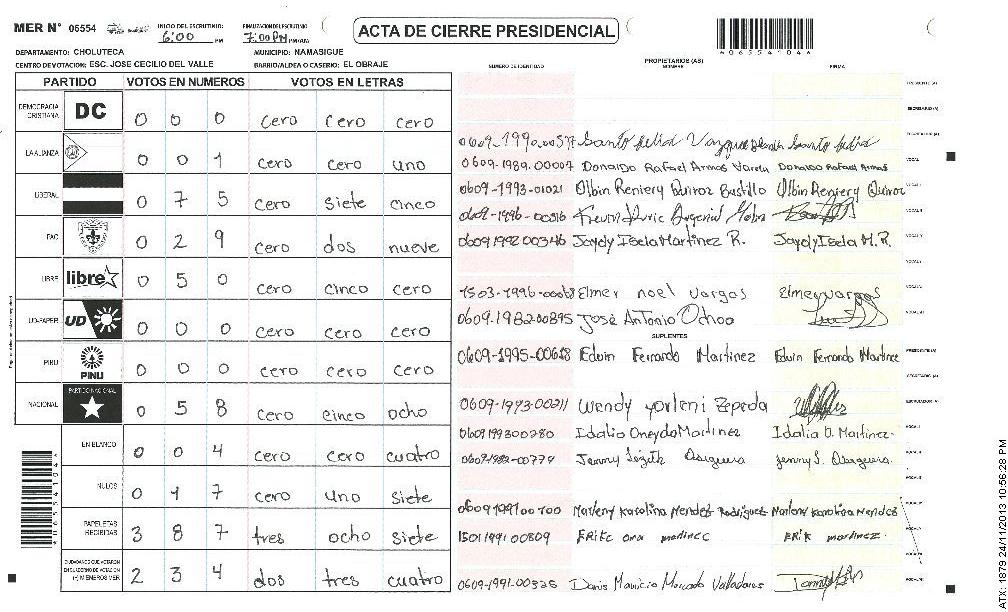 MER N° 06554 INICIO DEL ESCRUTINIO: 6:00 PM FINALIZACION DEL ESCRUTINIO 7:00 PM PM/AM
ACTA DE CIERRE PRESIDENCIAL
*06554104*
DEPARTAMENTO: CHOLUTECA MUNICIPIO: NAMASIGUE
CENTRO DE VOTACION: ESC. JOSE CECILIO DEL VALLE BARRIO/ALDEA O CASERIO: EL OBRAJE
PARTIDO VOTOS EN NUMEROS VOTOS EN LETRAS
DEMOCRACIA CRISTIANA DC 0 0 0 cero cero cero
LA ALIANZA 0 0 1 cero cero uno
LIBERAL 0 7 5 cero siete cinco
PAC 0 2 9 cero dos nueve
LIBRE libre 0 5 0 cero cinco cero
UD-FAPER UD 0 0 0 cero cero cero
PINU PINU 0 0 0 cero cero cero
NACIONAL PARTIDO NACIONAL 0 5 8 cero cinco ocho
EN BLANCO 0 0 4 cero cero cuatro
NULOS 0 1 7 cero uno siete
PAPELETAS RECIBIDAS 3 8 7 tres ocho siete
CIUDADANOS QUE VOTARON EN CUADERNO DE VOTACION (+) MIEMBROS MER 2 3 4 dos tres cuatro
PROPIETARIOS (AS)
NUMERO DE IDENTIDAD NOMBRE FIRMA
PRESIDENTE (A)
SECRETARIO (A)
Santo felix
0609-1989-00007 Donaldo Rafael Armas Varela Donaldo Rafael Armas
0609-1993-01021 Olbin Reniery Quiroz Bustillo Olbin Reniery Quiroz
0609-1996-00316
0609 1992 00346 Jaydy Isela Martinez R. Jaydy Isela M.R.
1503-1996-00068 Elmer noel vargas Elmer vargas
0609-1982-00895 José Antonio Ochoa
SUPLENTES
0609-1995-00618 Edwin Fernando Martinez Edwin Fernando Martinez
0609-1993-00211 Wendy yorleni Zepeda
0609199300280 Idalia Oneyda Martinez Idalia O. Martinez
0609-1982-00774 Jenny
0609 1991 00700 Marleny Karolina Mendez Rodriguez Marleny Karolina Mendez
1501 1991 00809 Erika ana martinez Erik martinez
0609-1991-00326 Danis Mauricio Mercado Valladares
ATX: 1879 24/11/2013 10:56:28 PM